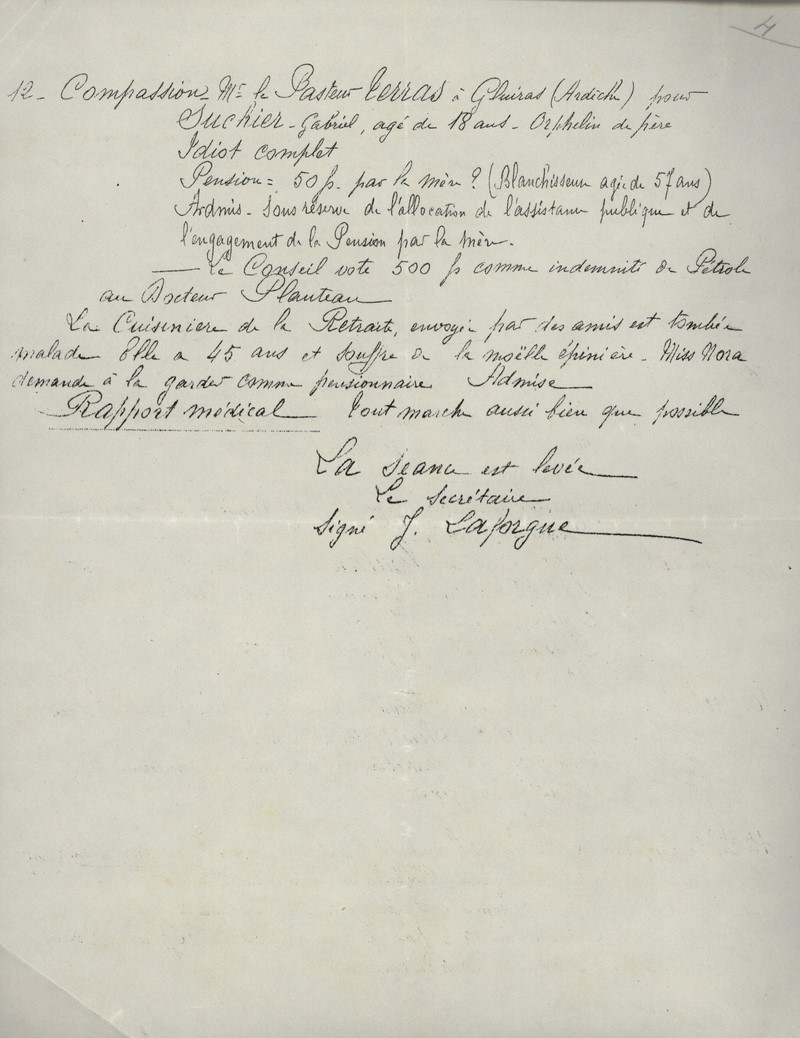 4
12 - Compassion - Mr le Pasteur Terras à Gluiras (Ardèche) pour
Suchier - Gabriel, agé de 18 ans - Orphelin de père
Idiot complet
Pension = 50 f. par la mère ? (Blanchisseuse agée de 57 ans)
Admis - Sous réserve de l'allocation de l'assistance publique et de
l'engagement de la Pension par la mère.
— Le Conseil vote 500 f comme indemnité de Pétrole
au Docteur Planteau
La Cuisinière de la Retraite, envoyée par des amis est tombée
malade Elle a 45 ans et souffre de la moëlle épinière - Miss Nora
demande à la garder comme pensionnaire Admise
Rapport médical — Tout marche aussi bien que possible
La séance est levée
Le secrétaire
Signé J. Laforgue